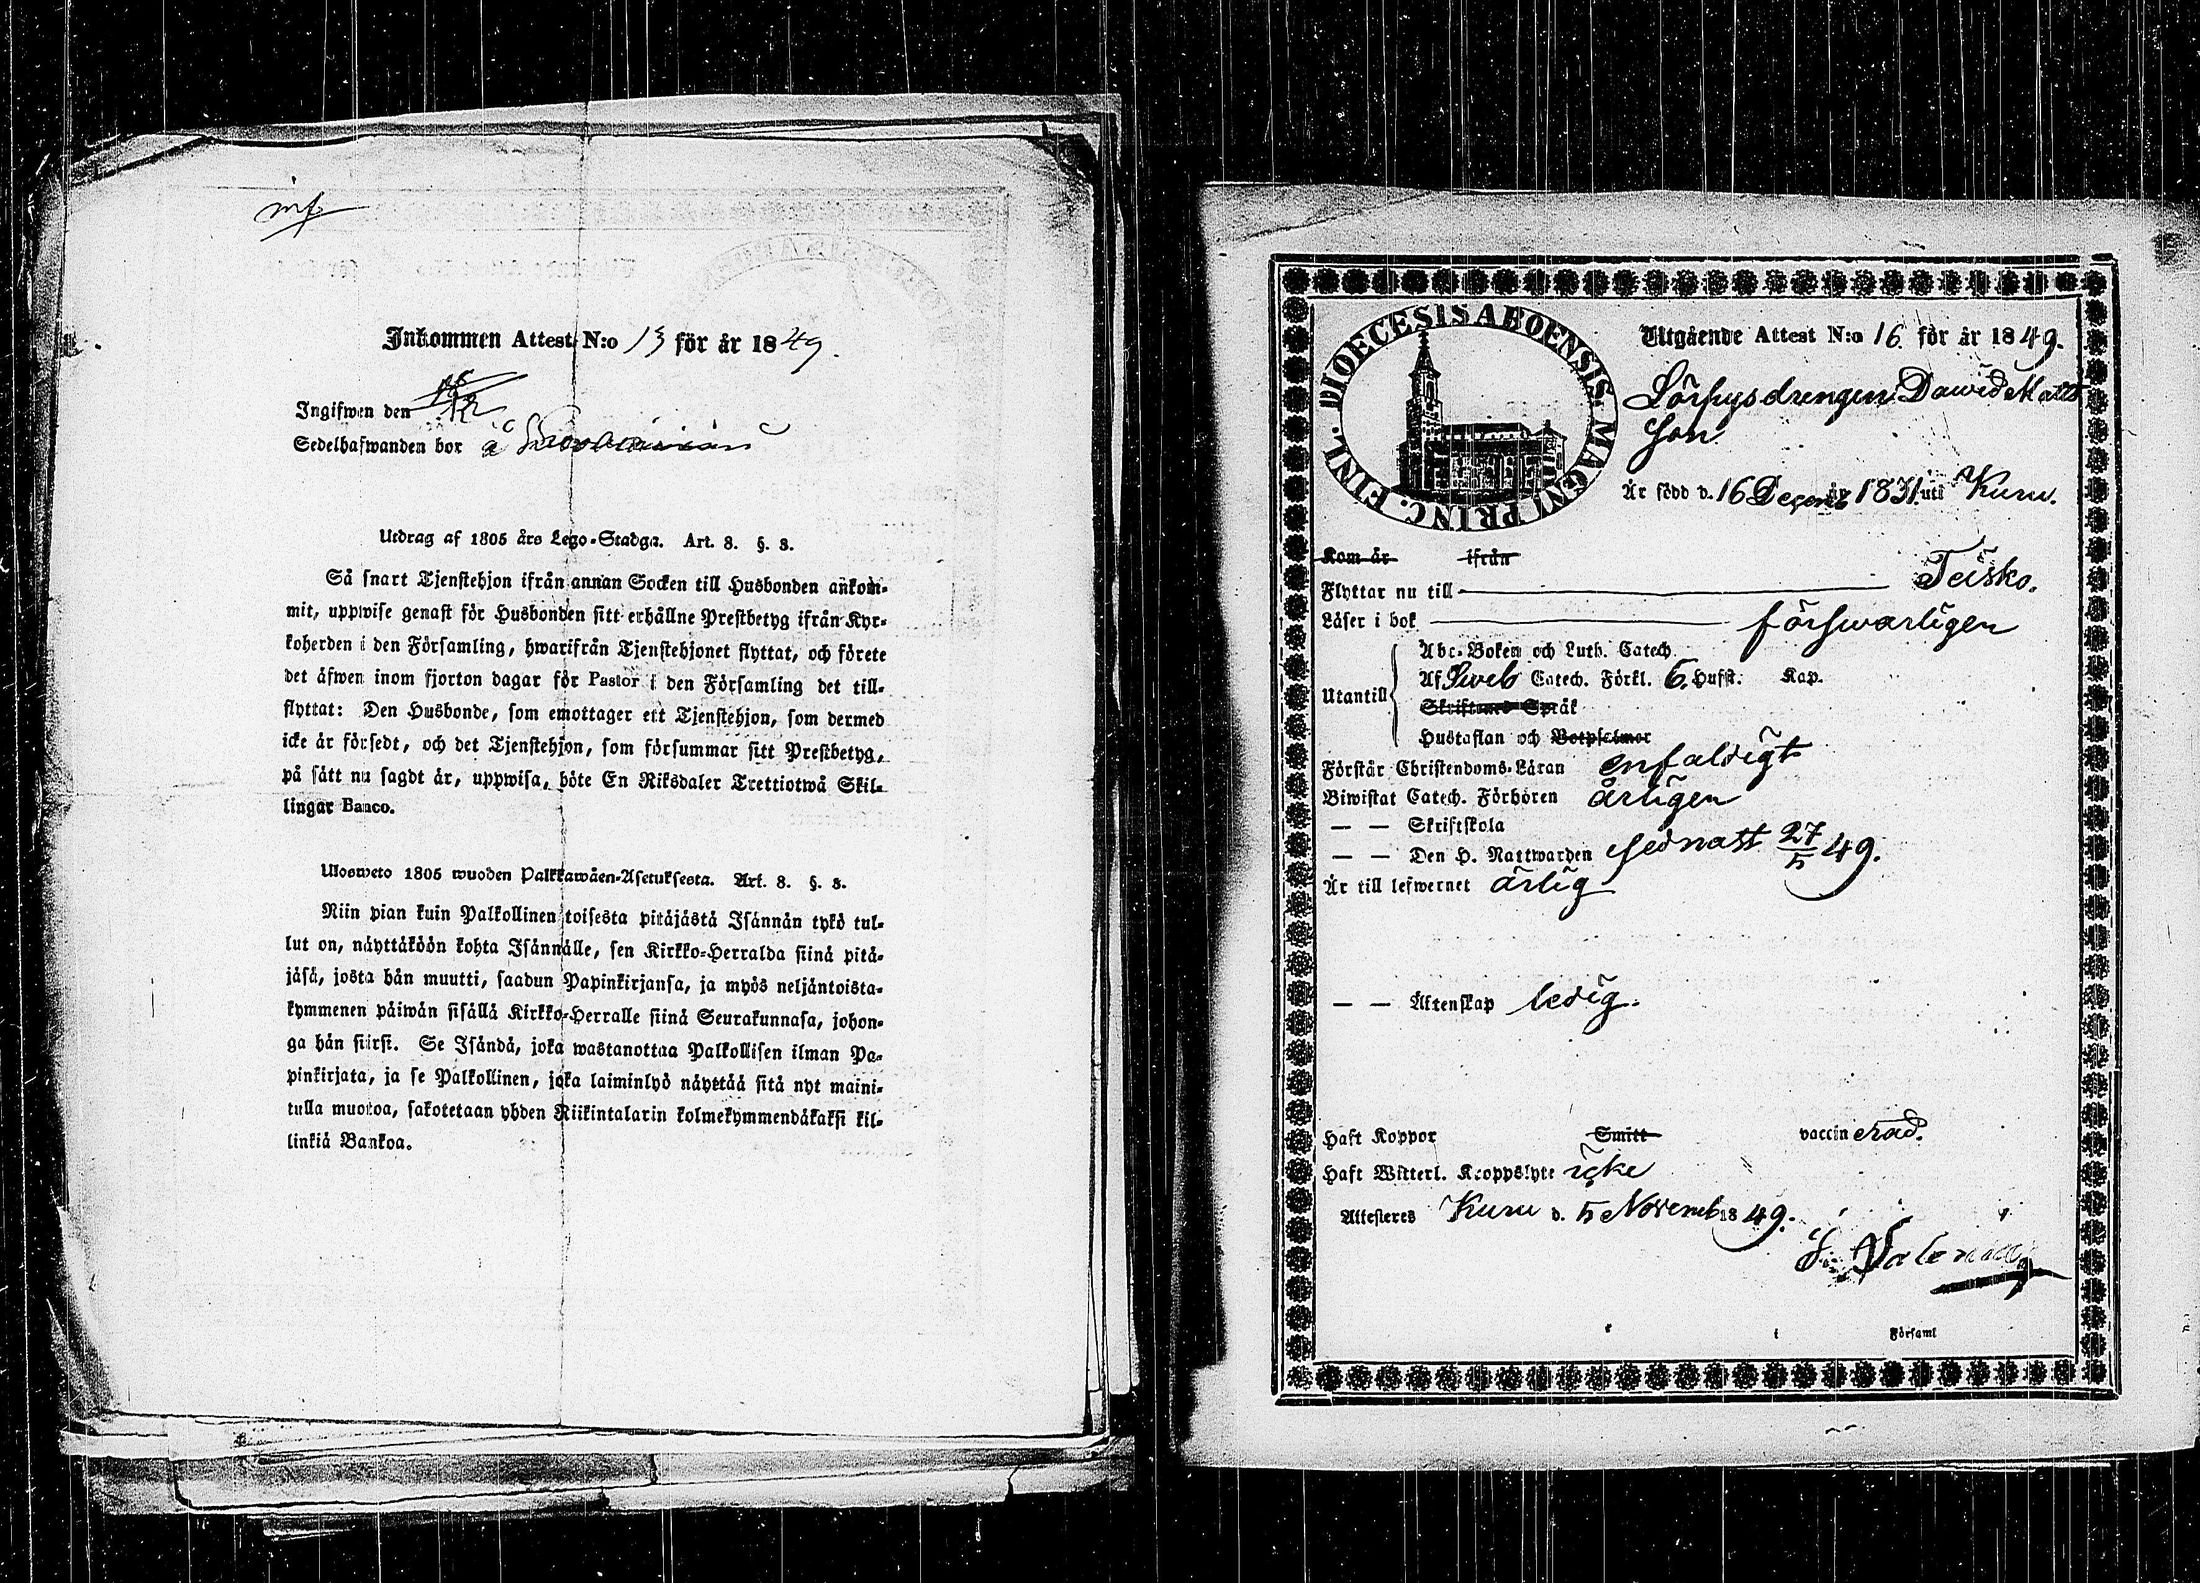 Inkommen Attest N:o 13 för år 1849.
Ingifwen den
Sedelhafwanden bor å
Utdrag af 1805 års Lego-Stadga. Art. 8. §. 3.
Så snart Tjenstehjon ifrån annan Socken till Husbonden ankom-
mit, uppwise genast för Husbonden sitt erhållne Prestbetyg ifrån Kyr-
koherden i den Församling, hwarifrån Tjenstehjonet flyttat, och förete
det äfwen inom fjorton dagar för Pastor i den Församling det till-
flyttat: Den Husbonde, som emottager ett Tjenstehjon, som dermed
icke är försedt, och det Tjenstehjon, som försummar sitt Prestbetyg,
på sätt nu sagdt är, uppwisa, böte En Riksdaler Trettiotwå Skil-
lingar Banco.
Ulosweto 1805 wuoden Palkkawäen-Asetuksesta. Art. 8. §. 3.
Niin pian kuin Palkollinen toisesta pitäjästä Isännän tykö tul-
lut on, näyttäköön kohta Isännälle, sen Kirkko-Herralda siinä pitä-
jäsä, josta hän muutti, saadun Papinkirjansa, ja myös neljäntoista-
kymmenen päiwän sisällä Kirkko-Herralle siinä Seurakunnasa, johon-
ga hän siirsi. Se Isändä, joka wastanottaa Palkollisen ilman Pa-
pinkirjata, ja se Palkollinen, joka laiminlyö näyttää sitä nyt maini-
tulla muotoa, sakotetaan yhden Riikintalarin kolmekymmendäkaksi kil-
linkiä Bankoa.
DIOECESIS ABOENSIS. MAGNI PRINC. FINL.
Utgående Attest N:o 16 för år 1849.
Sörpysdrengen Dawid Matts
son
Är född d. 16 Decemb år 1831 uti Kuru.
Kom år ifrån
Flyttar nu till Teisko.
Läser i bok förswarligen
Abc-Boken och Luth. Catech.
Utantill Af Sweb Catech. Förkl. 6. Hufst. Kap.
Skriftenes Språk
Hustaflan och Botpsalmer
Förstår Christendoms-Läran enfaldigt
Biwistat Catech. Förhören årligen
— — Skriftskola
— — Den H. Nattwarden sednast 27/5 49.
Är till lefwernet ärlig
— — Äktenskap ledig.
Haft Koppor Smitt vaccinerad.
Haft Witterl. Kroppslyte icke
Attesteres Kuru d. 5 Novemb 1849.
Församl